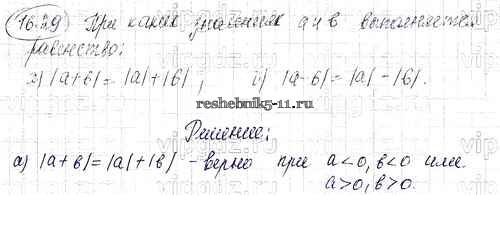 16.29 При каких значениях а и в выполняется
равенство:
а) |а+в| = |а|+|в| ; б) |а-в| = |а| - |в|.
reshebnik5-11.ru
Решение:
а) |а+в| = |а|+|в| - верно при а<0, в<0 или
а>0, в>0.